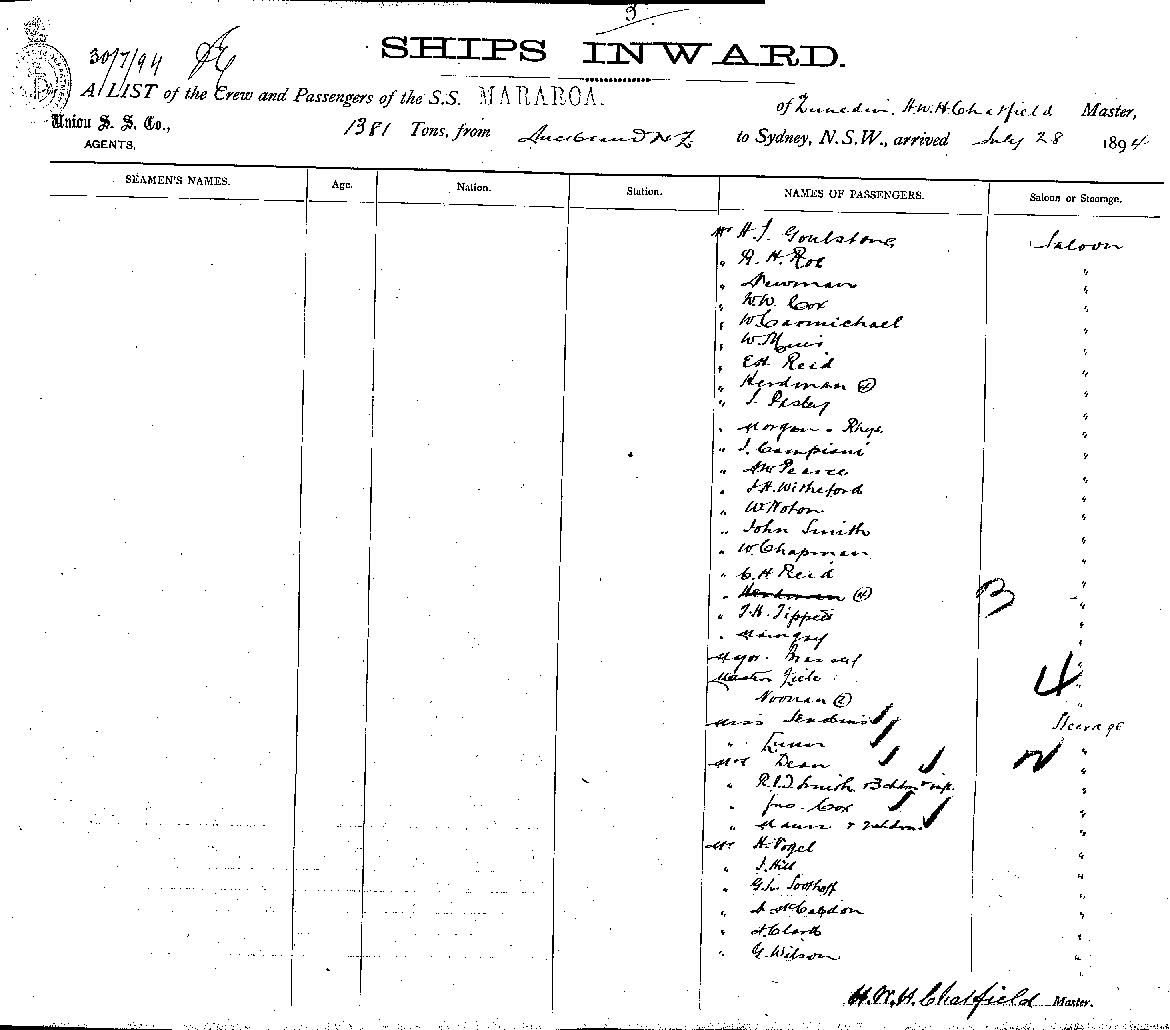 3
30/7/94
SHIPS INWARD.
A LIST of the Crew and Passengers of the S.S. MARAROA. of Dunedin, H.W.H. Chatfield Master,
Union S. S. Co., 1381 Tons, from NZ to Sydney, N.S.W., arrived July 28 1894
AGENTS,
SEAMEN'S NAMES. Age. Nation. Station. NAMES OF PASSENGERS. Saloon or Steerage.
Mr H. J. Goulstone Saloon
" R. H. Roe "
" Newman "
" W.W. Cox "
" W Carmichael "
" W. Muir "
" E.H. Reid "
" Herdman "
" J. Pasley "
" Morgan - Rhys "
" J. Campiani "
" Pearce "
" J.H. Witheford "
" W Noton "
" John Smith "
" W. Chapman "
" C. H. Reid "
" Herdman "
" T.H. Tippett "
" "
Major "
Master "
Noonan (2) "
Miss Jenkins Steerage
" "
Mrs Dean "
" Smith "
" Jno. Cox "
" Mann "
Mr H. Vogel "
" J. Hill "
" G.L. Soothoff "
" "
" A. Clark "
" G. Wilson "
H.W.H. Chatfield Master.